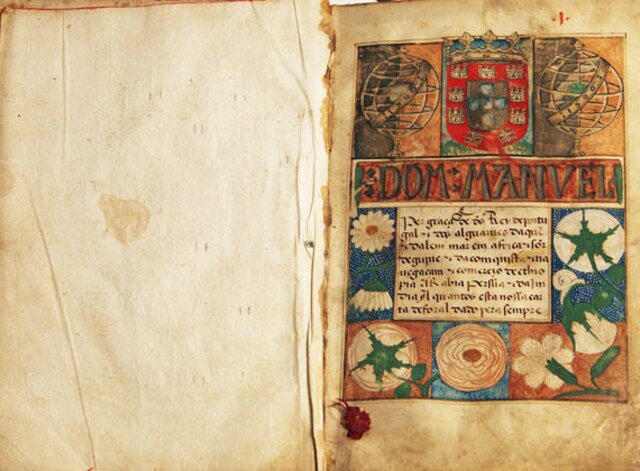 DOM: MANVEL
Per graça de ds Rey de portu
gal ⁊ dos alguarues daquē
⁊ dalem mar em africa sor
de guine ⁊ da comquista ⁊ na
uegacam ⁊ comercio de ethio
pia Arabia persia ⁊ da jn
dia A quantos esta nossa car
ta de foral dado pera sempre